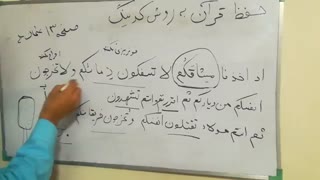 حفظ قرآن به روش کدینگ
صفحه ۱۳
اذ اخذنا میثاقکم لا تسفکون دمائکم ولا تخرجون
انفسکم من دیارکم ثم اقررتم وانتم تشهدون
ثم انتم هولاء تقتلون انفسکم و تخرجون فریقا